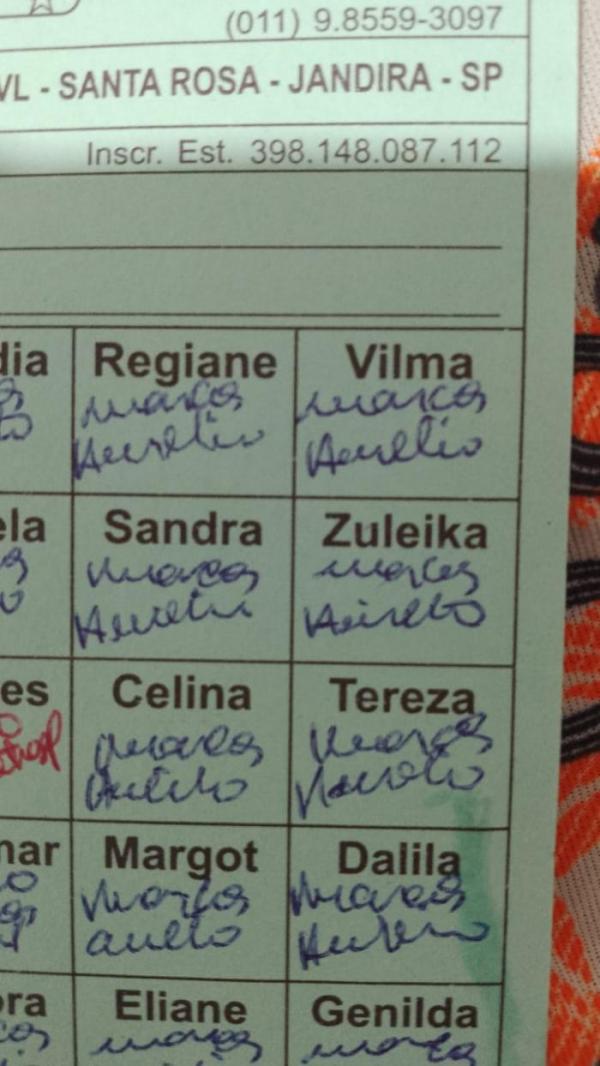 (011) 9.8559-3097
VL - SANTA ROSA - JANDIRA - SP
Inscr. Est. 398.148.087.112
dia Regiane Vilma
Marcos Marcos
Aurelio Aurelio
ela Sandra Zuleika
Marcos Marcos
Aurelio Aurelio
es Celina Tereza
Marcos Marcos
Aurelio Aurelio
mar Margot Dalila
Marcos Marcos
Aurelio Aurelio
ora Eliane Genilda
Marcos Marcos